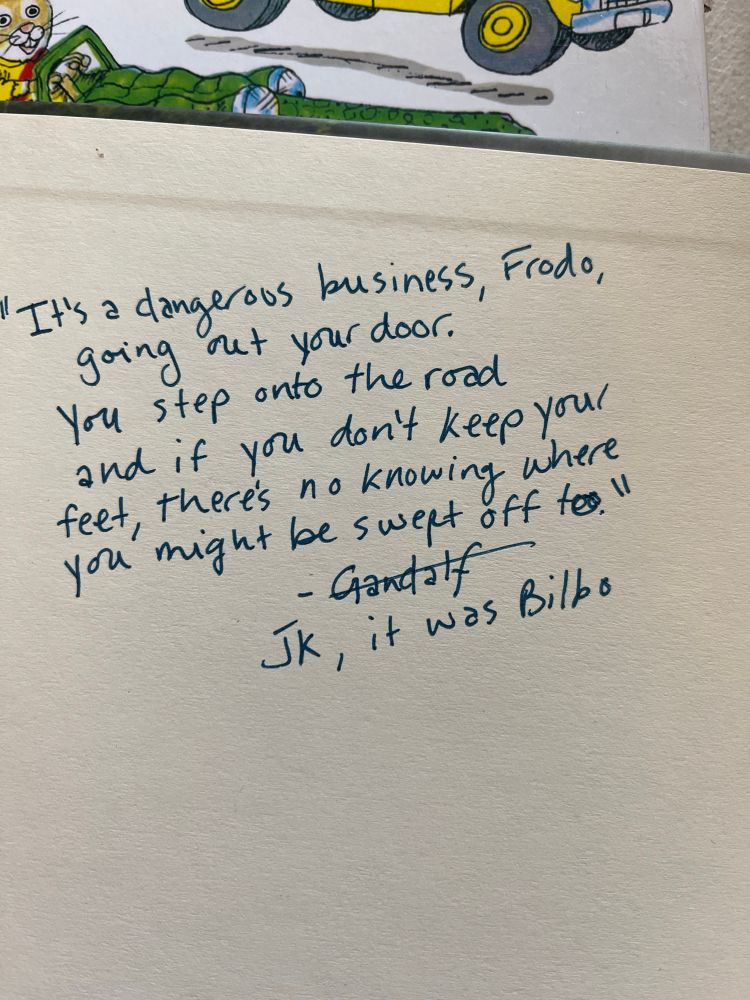 "It's a dangerous business, Frodo,
going out your door.
You step onto the road
and if you don't keep your
feet, there's no knowing where
you might be swept off to."
- Gandalf
JK, it was Bilbo